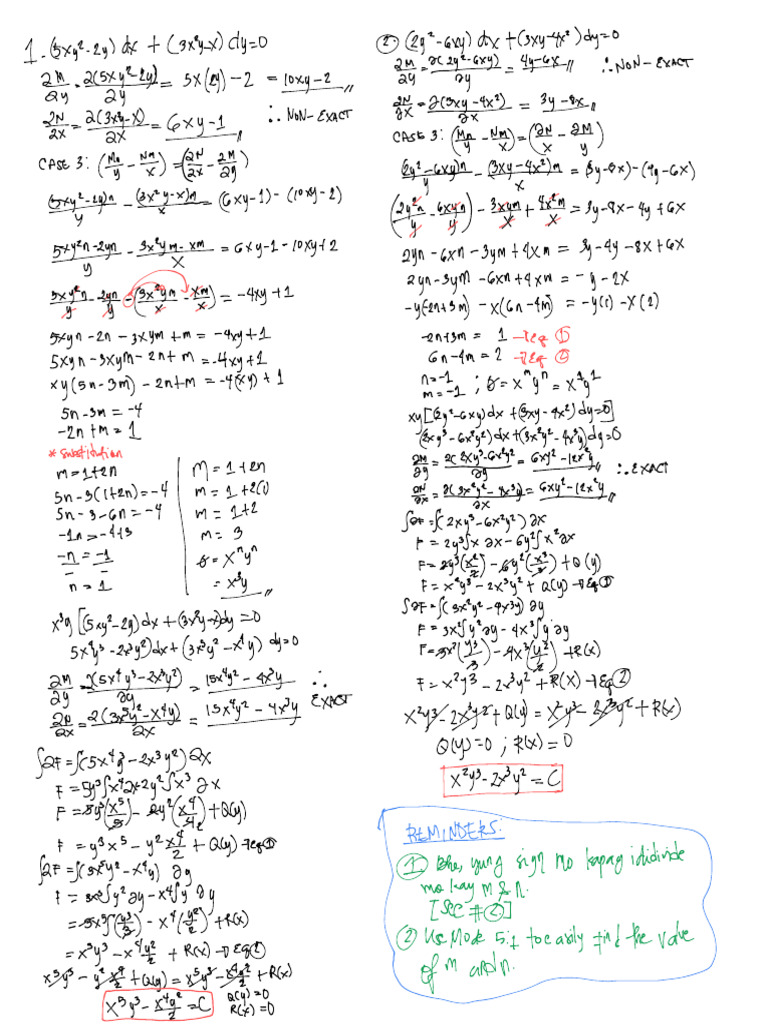 1. (5xy²-2y) dx + (3x²y-x) dy=0
∂M/∂y = ∂(5xy²-2y)/∂y = 5x(2y)-2 = 10xy-2
∂N/∂x = ∂(3x²y-x)/∂x = 6xy-1 ∴ NON-EXACT
CASE 3: (Mn/y - Nm/x) = (∂N/∂x - ∂M/∂y)
(5xy²-2y)n/y - (3x²y-x)m/x = (6xy-1)-(10xy-2)
5xy²n-2yn/y - 3x²ym-xm/x = 6xy-1-10xy+2
5xy²n/y - 2yn/y - (3x²ym/x - xm/x) = -4xy+1
5xyn-2n-3xym+m = -4xy+1
5xyn-3xym-2n+m = -4xy+1
xy(5n-3m)-2n+m = -4(xy)+1
5n-3m=-4
-2n+m=1
*substitution
m=1+2n
5n-3(1+2n)=-4
5n-3-6n=-4
-1n=-4+3
-n=-1
n=1
m=1+2n
m=1+2(1)
m=1+2
m=3
=xᵐyⁿ
=x³y
x³y [(5xy²-2y)dx+(3x²y-x)dy=0
5x⁴y³-2x³y²)dx+(3x⁵y²-x⁴y) dy=0
∂M/∂y = ∂(5x⁴y³-2x³y²)/∂y = 15x⁴y²-4x³y ∴
∂N/∂x = ∂(3x⁵y²-x⁴y)/∂x = 15x⁴y²-4x³y EXACT
∫∂F=∫(5x⁴y³-2x³y²)∂x
F=5y³∫x⁴∂x-2y²∫x³∂x
F=5y³(x⁵/5)-2y²(x⁴/4)+Q(y)
F=y³x⁵-y²x⁴/2+Q(y)→Eq①
∫∂F=∫(3x⁵y²-x⁴y)∂y
F=3x⁵∫y²∂y-x⁴∫y∂y
=3x⁵(y³/3)-x⁴(y²/2)+R(x)
=x⁵y³-x⁴y²/2+R(x)→Eq②
x⁵y³-y²x⁴/2+Q(y)=x⁵y³-x⁴y²/2+R(x)
x⁵y³-x⁴y²/2=C
Q(y)=0
R(x)=0
② (2y²-6xy) dx+(3xy-4x²)dy=0
∂M/∂y = ∂(2y²-6xy)/∂y = 4y-6x ∴NON-EXACT
∂N/∂x = ∂(3xy-4x²)/∂x = 3y-8x
CASE 3: (Mn/y - Nm/x) = (∂N/∂x - ∂M/∂y)
(2y²-6xy)n/y - (3xy-4x²)m/x = (3y-8x)-(4y-6x)
(2y²n/y - 6xyn/y) - 3xym/x + 4x²m/x = 3y-8x-4y+6x
2yn-6xn-3ym+4xm = 3y-4y-8x+6x
2yn-3ym-6xn+4xm = -y-2x
-y(-2n+3m)-x(6n-4m) = -y(1)-x(2)
-2n+3m=1 →Eq①
6n-4m=2 →Eq②
n=-1
m=-1 ; =xᵐyⁿ=x¹y¹
xy[(2y²-6xy)dx+(3xy-4x²)dy=0]
(2xy³-6x²y²)dx+(3x²y²-4x³y)dy=0
∂M/∂y = ∂(2xy³-6x²y²)/∂y = 6xy²-12x²y ∴EXACT
∂N/∂x = ∂(3x²y²-4x³y)/∂x = 6xy²-12x²y
∫∂F=∫(2xy³-6x²y²)∂x
F=2y³∫x∂x-6y²∫x²∂x
F=2y³(x²/2)-6y²(x³/3)+Q(y)
F=x²y³-2x³y²+Q(y)→Eq①
∫∂F=∫(3x²y²-4x³y)∂y
F=3x²∫y²∂y-4x³∫y∂y
F=3x²(y³/3)-4x³(y²/2)+R(x)
F=x²y³-2x³y²+R(x)→Eq②
x²y³-2x³y²+Q(y)=x²y³-2x³y²+R(x)
Q(y)=0;R(x)=0
x²y³-2x³y²=C
REMINDERS:
① Bhe, yung sign mo kapag ididivide
mo kay m & n.
[SEC #②]
② Use Mode 5:1 to easily find the value
of m and n.